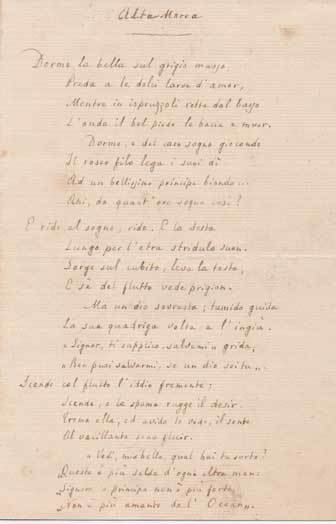 Alta Marea
Dorme la bella sul grigio masso
Preda a le dolci larve d'amor,
Mentre in ispruzzoli rotta dal basso
L'onda il bel piede le bacia e muor.
Dorme, e del caro sogno giocondo
Il roseo filo lega i suoi dì
Ad un bellissimo principe biondo...
Ahi, da quant'ore sogna così?
E ride al sogno, ride. E la desta
Lungo per l'etra stridulo suon.
Sorge sul cubito, leva la testa,
E sè del flutto vede prigion.
Ma un dio sovrasta; tumido guida
La sua quadriga volta a l'ingiù.
« Signor, ti supplico, salvami » grida,
« Ben puoi salvarmi, se un dio sei tu ».
Scende col flutto l'iddio fremente:
Scende, e la spuma rugge il desir.
Trema ella, ed avido lo vede, il sente
Al vacillante seno
« Vedi, mia bella, qual hai tu sorte?
Questa è più salda d'ogni altra man:
Signore o principe non è più forte,
Non è più amante de l'Ocean ».